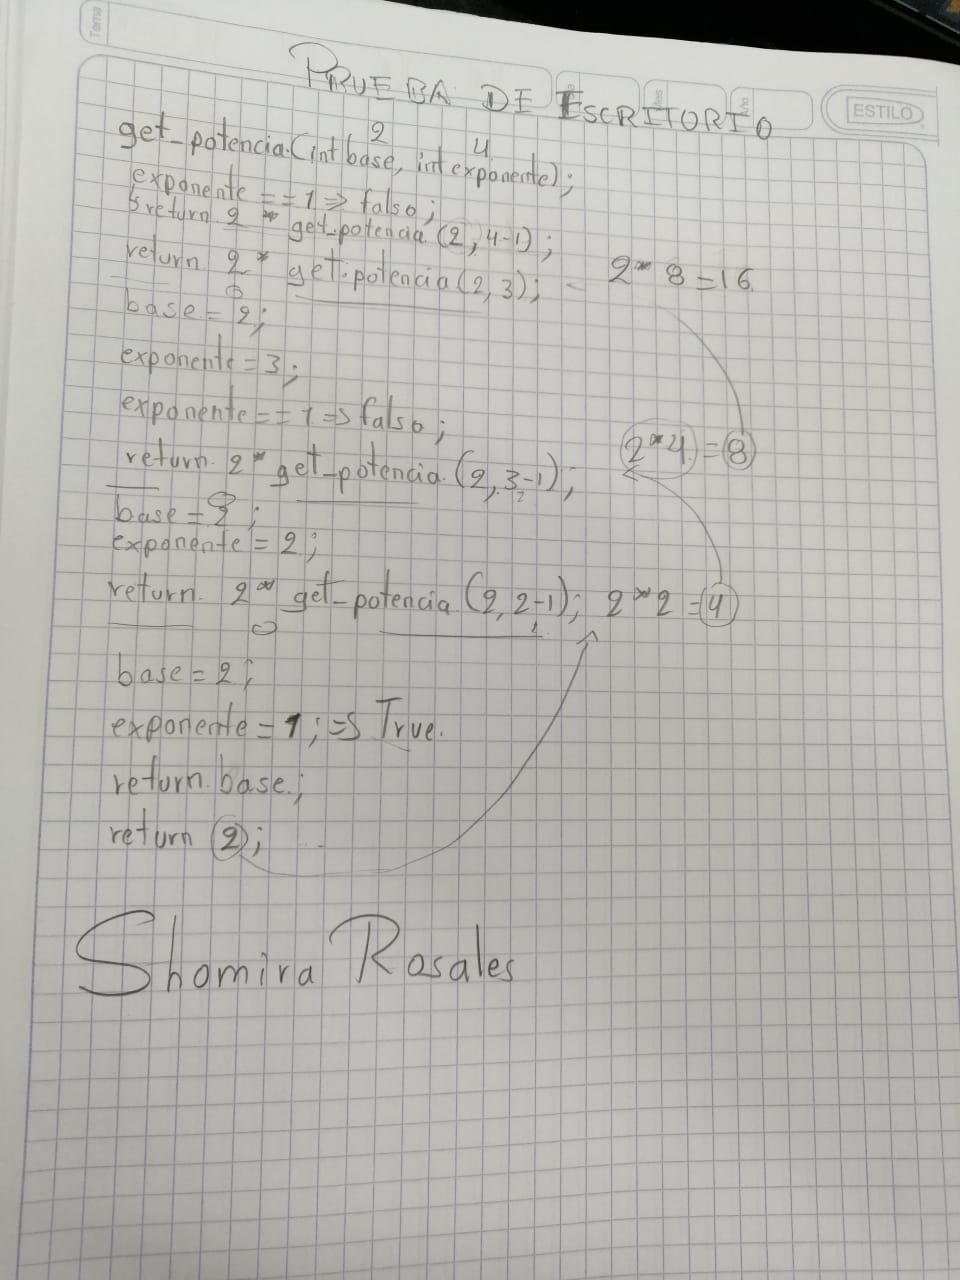 Tema
ESTILO
PRUEBA DE ESCRITORIO
2 4
get_potencia(int base, int exponente);
exponente == 1 => falso;
return 2 * get_potencia (2, 4-1);
return 2 * get_potencia (2, 3); 2 * 8 = 16
base = 2;
exponente = 3;
exponente == 1 => falso;
2 * 4 = 8
return 2 * get_potencia (2, 3-1);
2
base = 2;
exponente = 2;
return 2 * get_potencia (2, 2-1); 2 * 2 = 4
1
base = 2;
exponente = 1; => True.
return base;
return 2;
Shomira Rosales